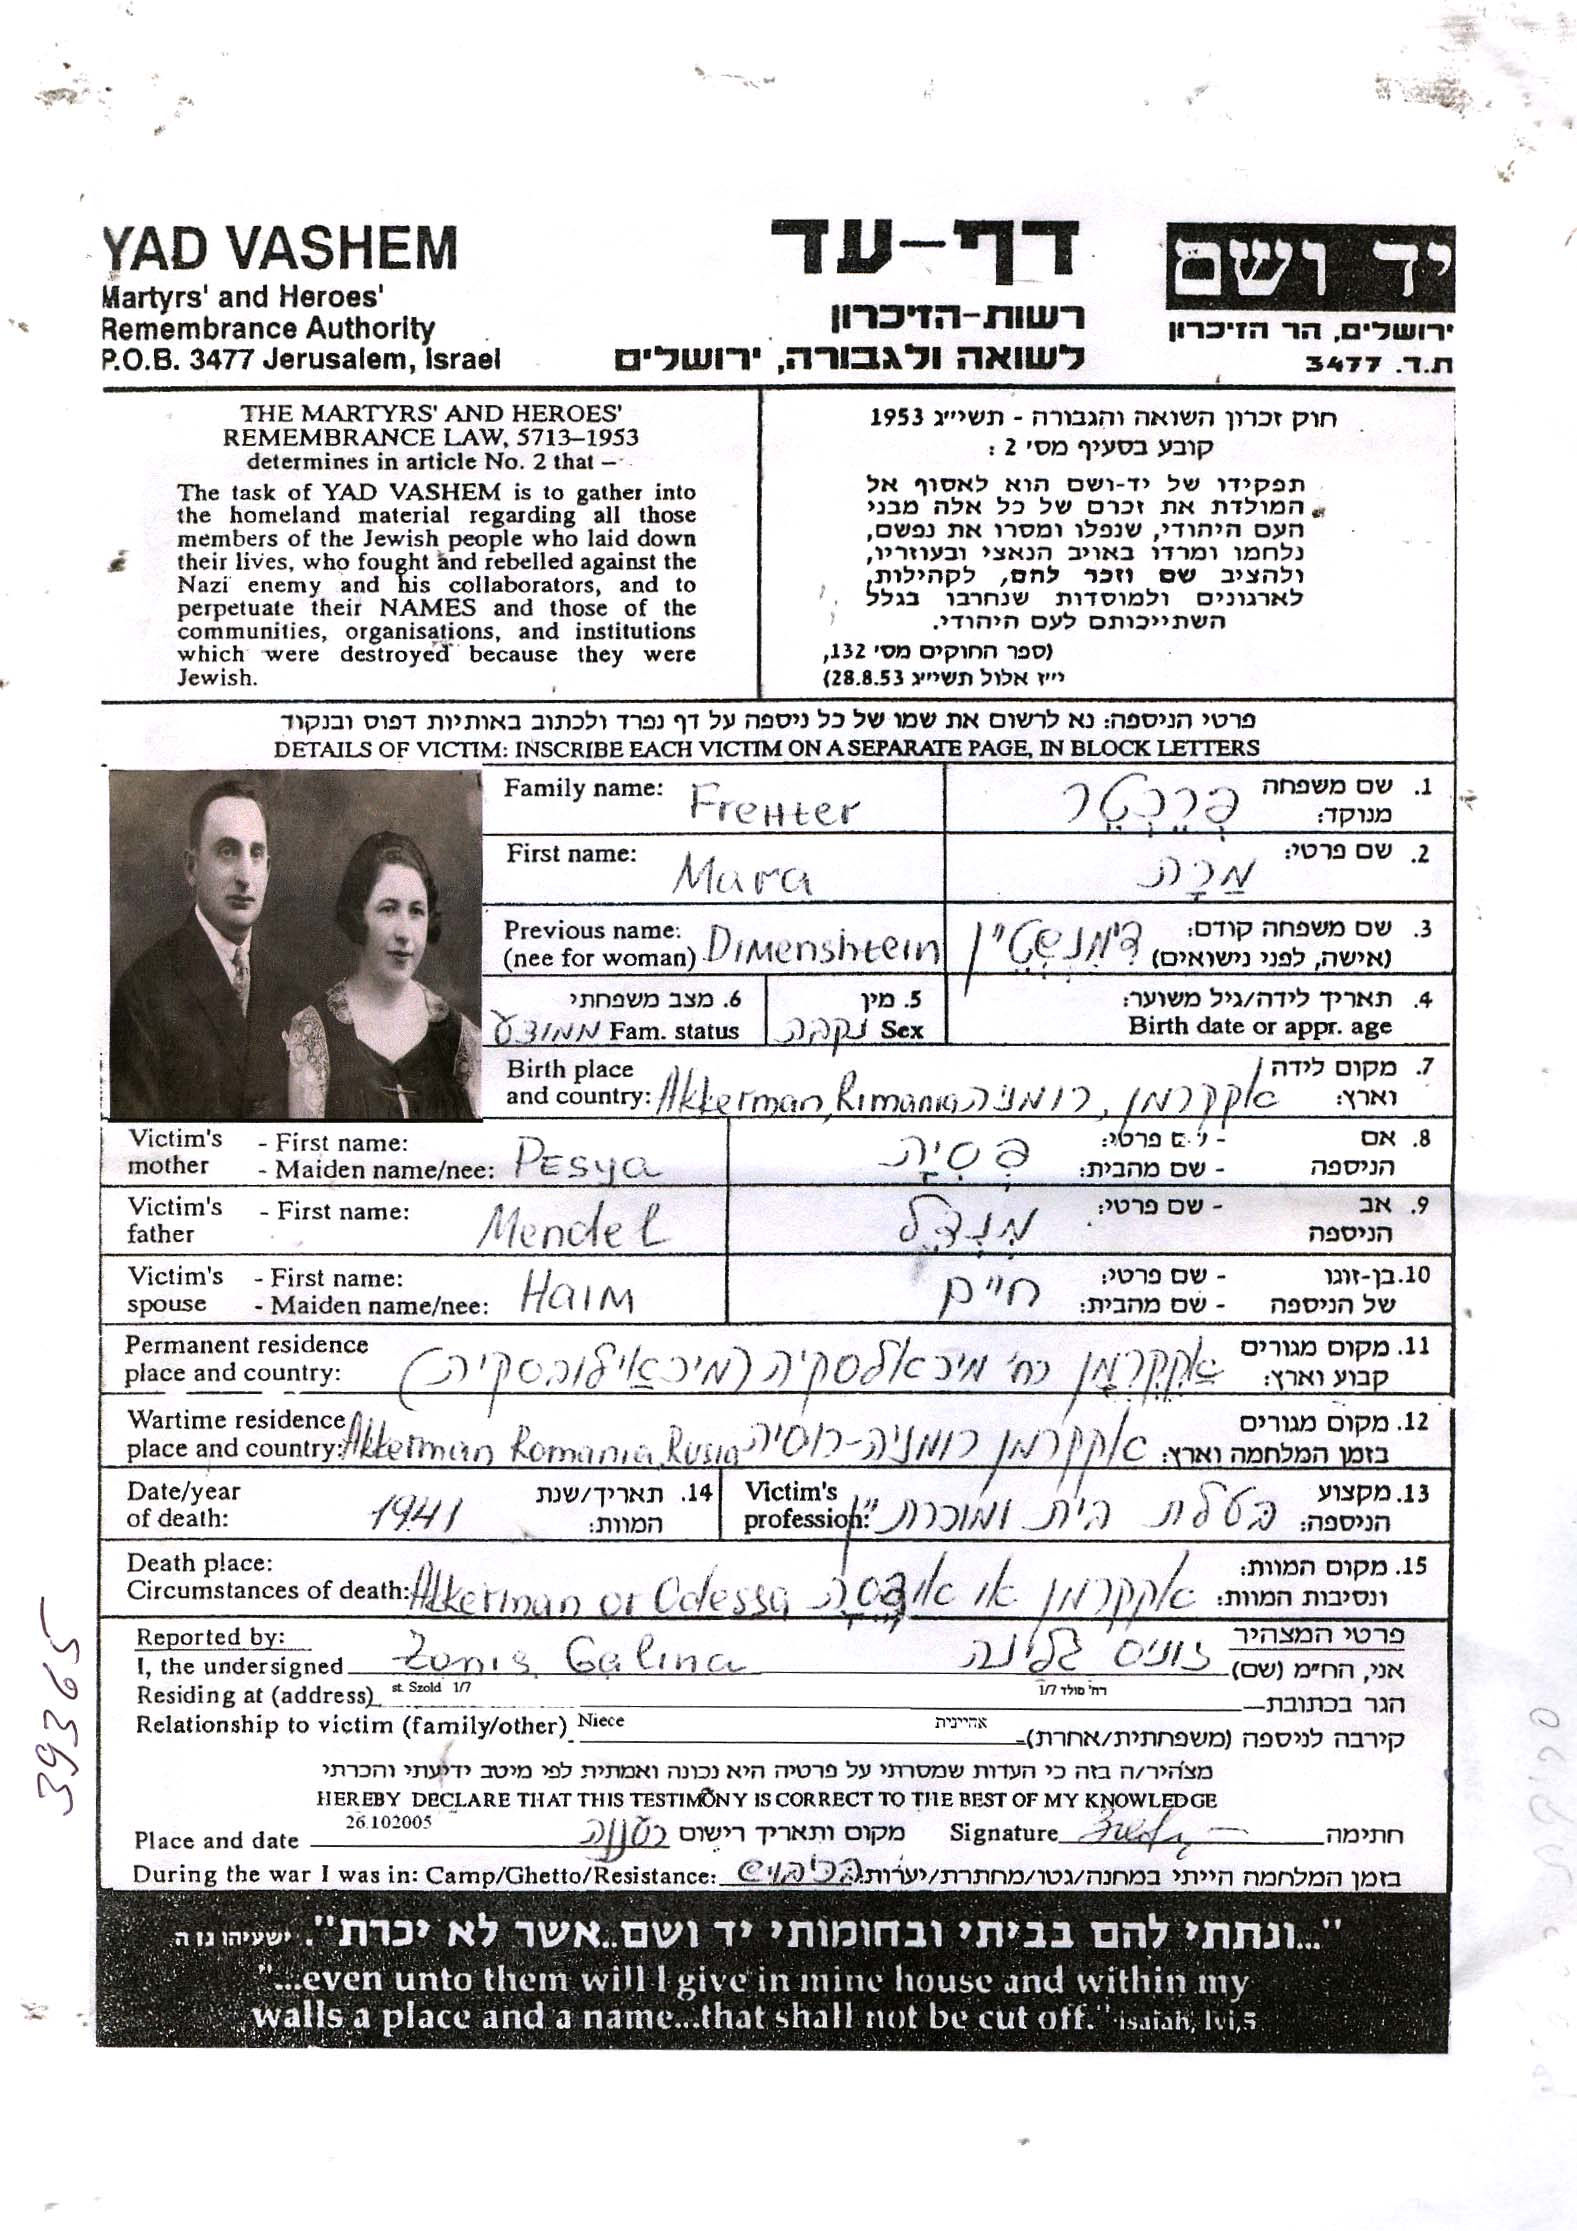 YAD VASHEM
Martyrs' and Heroes'
Remembrance Authority
P.O.B. 3477 Jerusalem, Israel
דף-עד
רשות-הזיכרון
לשואה ולגבורה, ירושלים
יד ושם
ירושלים, הר הזיכרון
ת.ד. 3477
THE MARTYRS' AND HEROES'
REMEMBRANCE LAW, 5713–1953
determines in article No. 2 that –
The task of YAD VASHEM is to gather into
the homeland material regarding all those
members of the Jewish people who laid down
their lives, who fought and rebelled against the
Nazi enemy and his collaborators, and to
perpetuate their NAMES and those of the
communities, organisations, and institutions
which were destroyed because they were
Jewish.
חוק זכרון השואה והגבורה - תשי״ג 1953
קובע בסעיף מס׳ 2 :
תפקידו של יד-ושם הוא לאסוף אל
המולדת את זכרם של כל אלה מבני
העם היהודי, שנפלו ומסרו את נפשם,
נלחמו ומרדו באויב הנאצי ובעוזריו,
ולהציב שם וזכר להם, לקהילות,
לארגונים ולמוסדות שנחרבו בגלל
השתייכותם לעם היהודי.
(ספר החוקים מס׳ 132,
י״ז אלול תשי״ג 28.8.53)
פרטי הניספה: נא לרשום את שמו של כל ניספה על דף נפרד ולכתוב באותיות דפוס ובנקוד
DETAILS OF VICTIM: INSCRIBE EACH VICTIM ON A SEPARATE PAGE, IN BLOCK LETTERS
Family name: Frehter פרכטר 1. שם משפחה
מנוקד:
First name: Mara מרה 2. שם פרטי:
Previous name: 3. שם משפחה קודם:
(nee for woman) Dimenshtein דימנשטיין (אישה, לפני נישואים)
6. מצב משפחתי 5. מין 4. תאריך לידה/גיל משוער:
Fam. status Sex נקבה Birth date or appr. age
Birth place 7. מקום לידה
and country: Akkerman, Rimania אקקרמן, רומניה וארץ:
Victim's - First name: - שם פרטי: 8. אם
mother - Maiden name/nee: Pesya פסיה - שם מהבית: הניספה
Victim's - First name: Mendel מנדל - שם פרטי: 9. אב
father הניספה
Victim's - First name: - שם פרטי: 10. בן-זוגו
spouse - Maiden name/nee: Haim חיים - שם מהבית: של הניספה
Permanent residence 11. מקום מגורים
place and country: אקקרמן רח' מיכאלסקיה (מיכאילובסקיה) קבוע וארץ:
Wartime residence 12. מקום מגורים
place and country: Akkerman Romania, Rusia אקקרמן רומניה-רוסיה בזמן המלחמה וארץ:
Date/year 14. תאריך/שנת Victim's 13. מקצוע
of death: 1941 המוות: profession: בעלת בית הניספה:
Death place: 15. מקום המוות:
Circumstances of death: Akkerman or Odessa אקקרמן או אודסה ונסיבות המוות:
Reported by: פרטי המצהיר
I, the undersigned Zonis Galina זוניס גלינה אני, הח״מ (שם)
Residing at (address) st. Szold 1/7 רח' סולד 1/7 הגר בכתובת
Relationship to victim (family/other) Niece אחיינית קירבה לניספה (משפחתית/אחרת)
מצהיר/ה בזה כי העדות שמסרתי על פרטיה היא נכונה ואמתית לפי מיטב ידיעתי והכרתי
HEREBY DECLARE THAT THIS TESTIMONY IS CORRECT TO THE BEST OF MY KNOWLEDGE
Place and date 26.102005 רעננה מקום ותאריך רישום Signature חתימה
During the war I was in: Camp/Ghetto/Resistance: בזמן המלחמה הייתי במחנה/גטו/מחתרת/יערות:
"...ונתתי להם בביתי ובחומותי יד ושם..אשר לא יכרת". ישעיהו נו ה
"...even unto them will I give in mine house and within my
walls a place and a name...that shall not be cut off." isaiah, lvi,5
39365